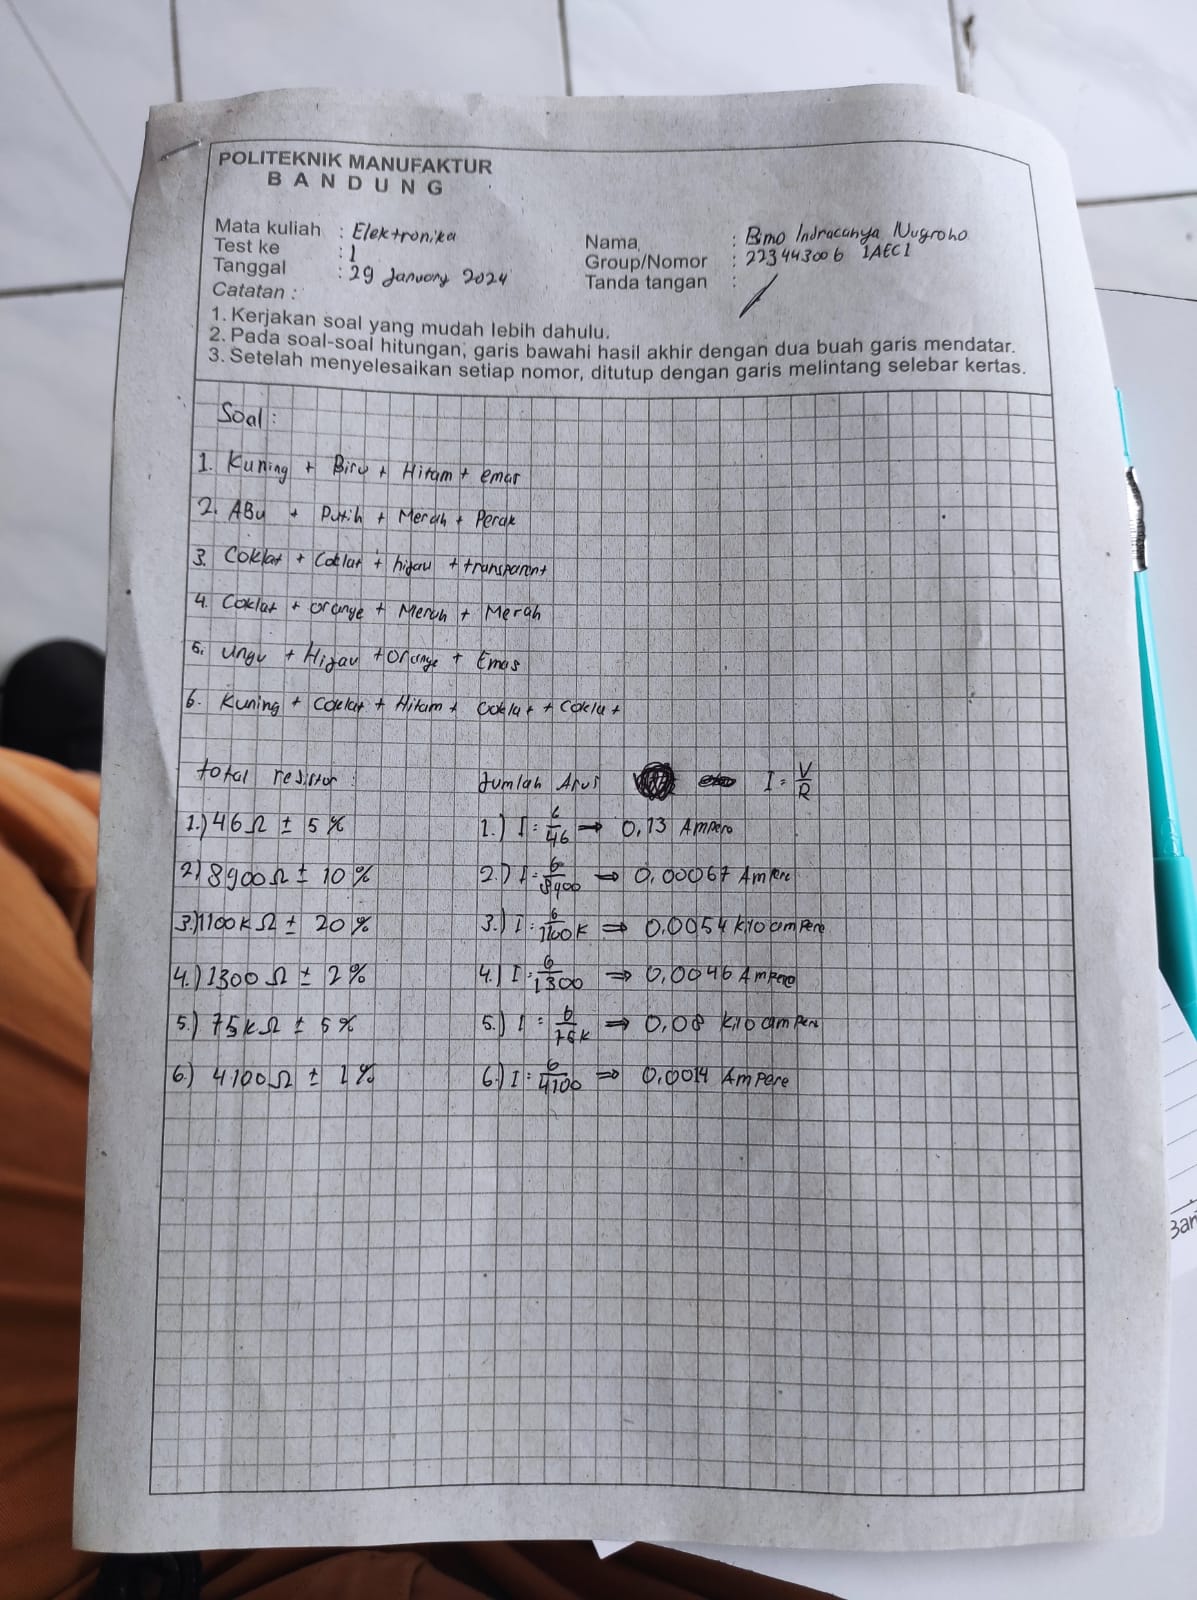 POLITEKNIK MANUFAKTUR
BANDUNG
Mata kuliah : Elektronika
Test ke : 1
Tanggal : 29 January 2024
Catatan :
Nama : Bimo Indracahya Nugroho
Group/Nomor : 223443006 1AEC1
Tanda tangan :
1. Kerjakan soal yang mudah lebih dahulu.
2. Pada soal-soal hitungan, garis bawahi hasil akhir dengan dua buah garis mendatar.
3. Setelah menyelesaikan setiap nomor, ditutup dengan garis melintang selebar kertas.
Soal :
1. Kuning + Biru + Hitam + emas
2. ABu + Putih + Merah + Perak
3. Coklat + Coklat + hijau + transparent
4. Coklat + orange + Merah + Merah
5. Ungu + Hijau + Orange + Emas
6. Kuning + Coklat + Hitam + Coklat + Coklat
total resistor :
1.) 46 Ω ± 5 %
2) 8900 Ω ± 10 %
3.) 1100 K Ω ± 20 %
4.) 1300 Ω ± 2 %
5.) 75 K Ω ± 5 %
6.) 4100 Ω ± 1 %
Jumlah Arus I = V/R
1.) I = 6/46 ⇒ 0,13 Ampere
2.) I = 6/8900 ⇒ 0,00067 Ampere
3.) I = 6/1100 K ⇒ 0,0054 kilo ampere
4.) I = 6/1300 ⇒ 0,0046 Ampere
5.) I = 6/75 K ⇒ 0,08 Kilo ampere
6.) I = 6/4100 ⇒ 0,0014 Ampere